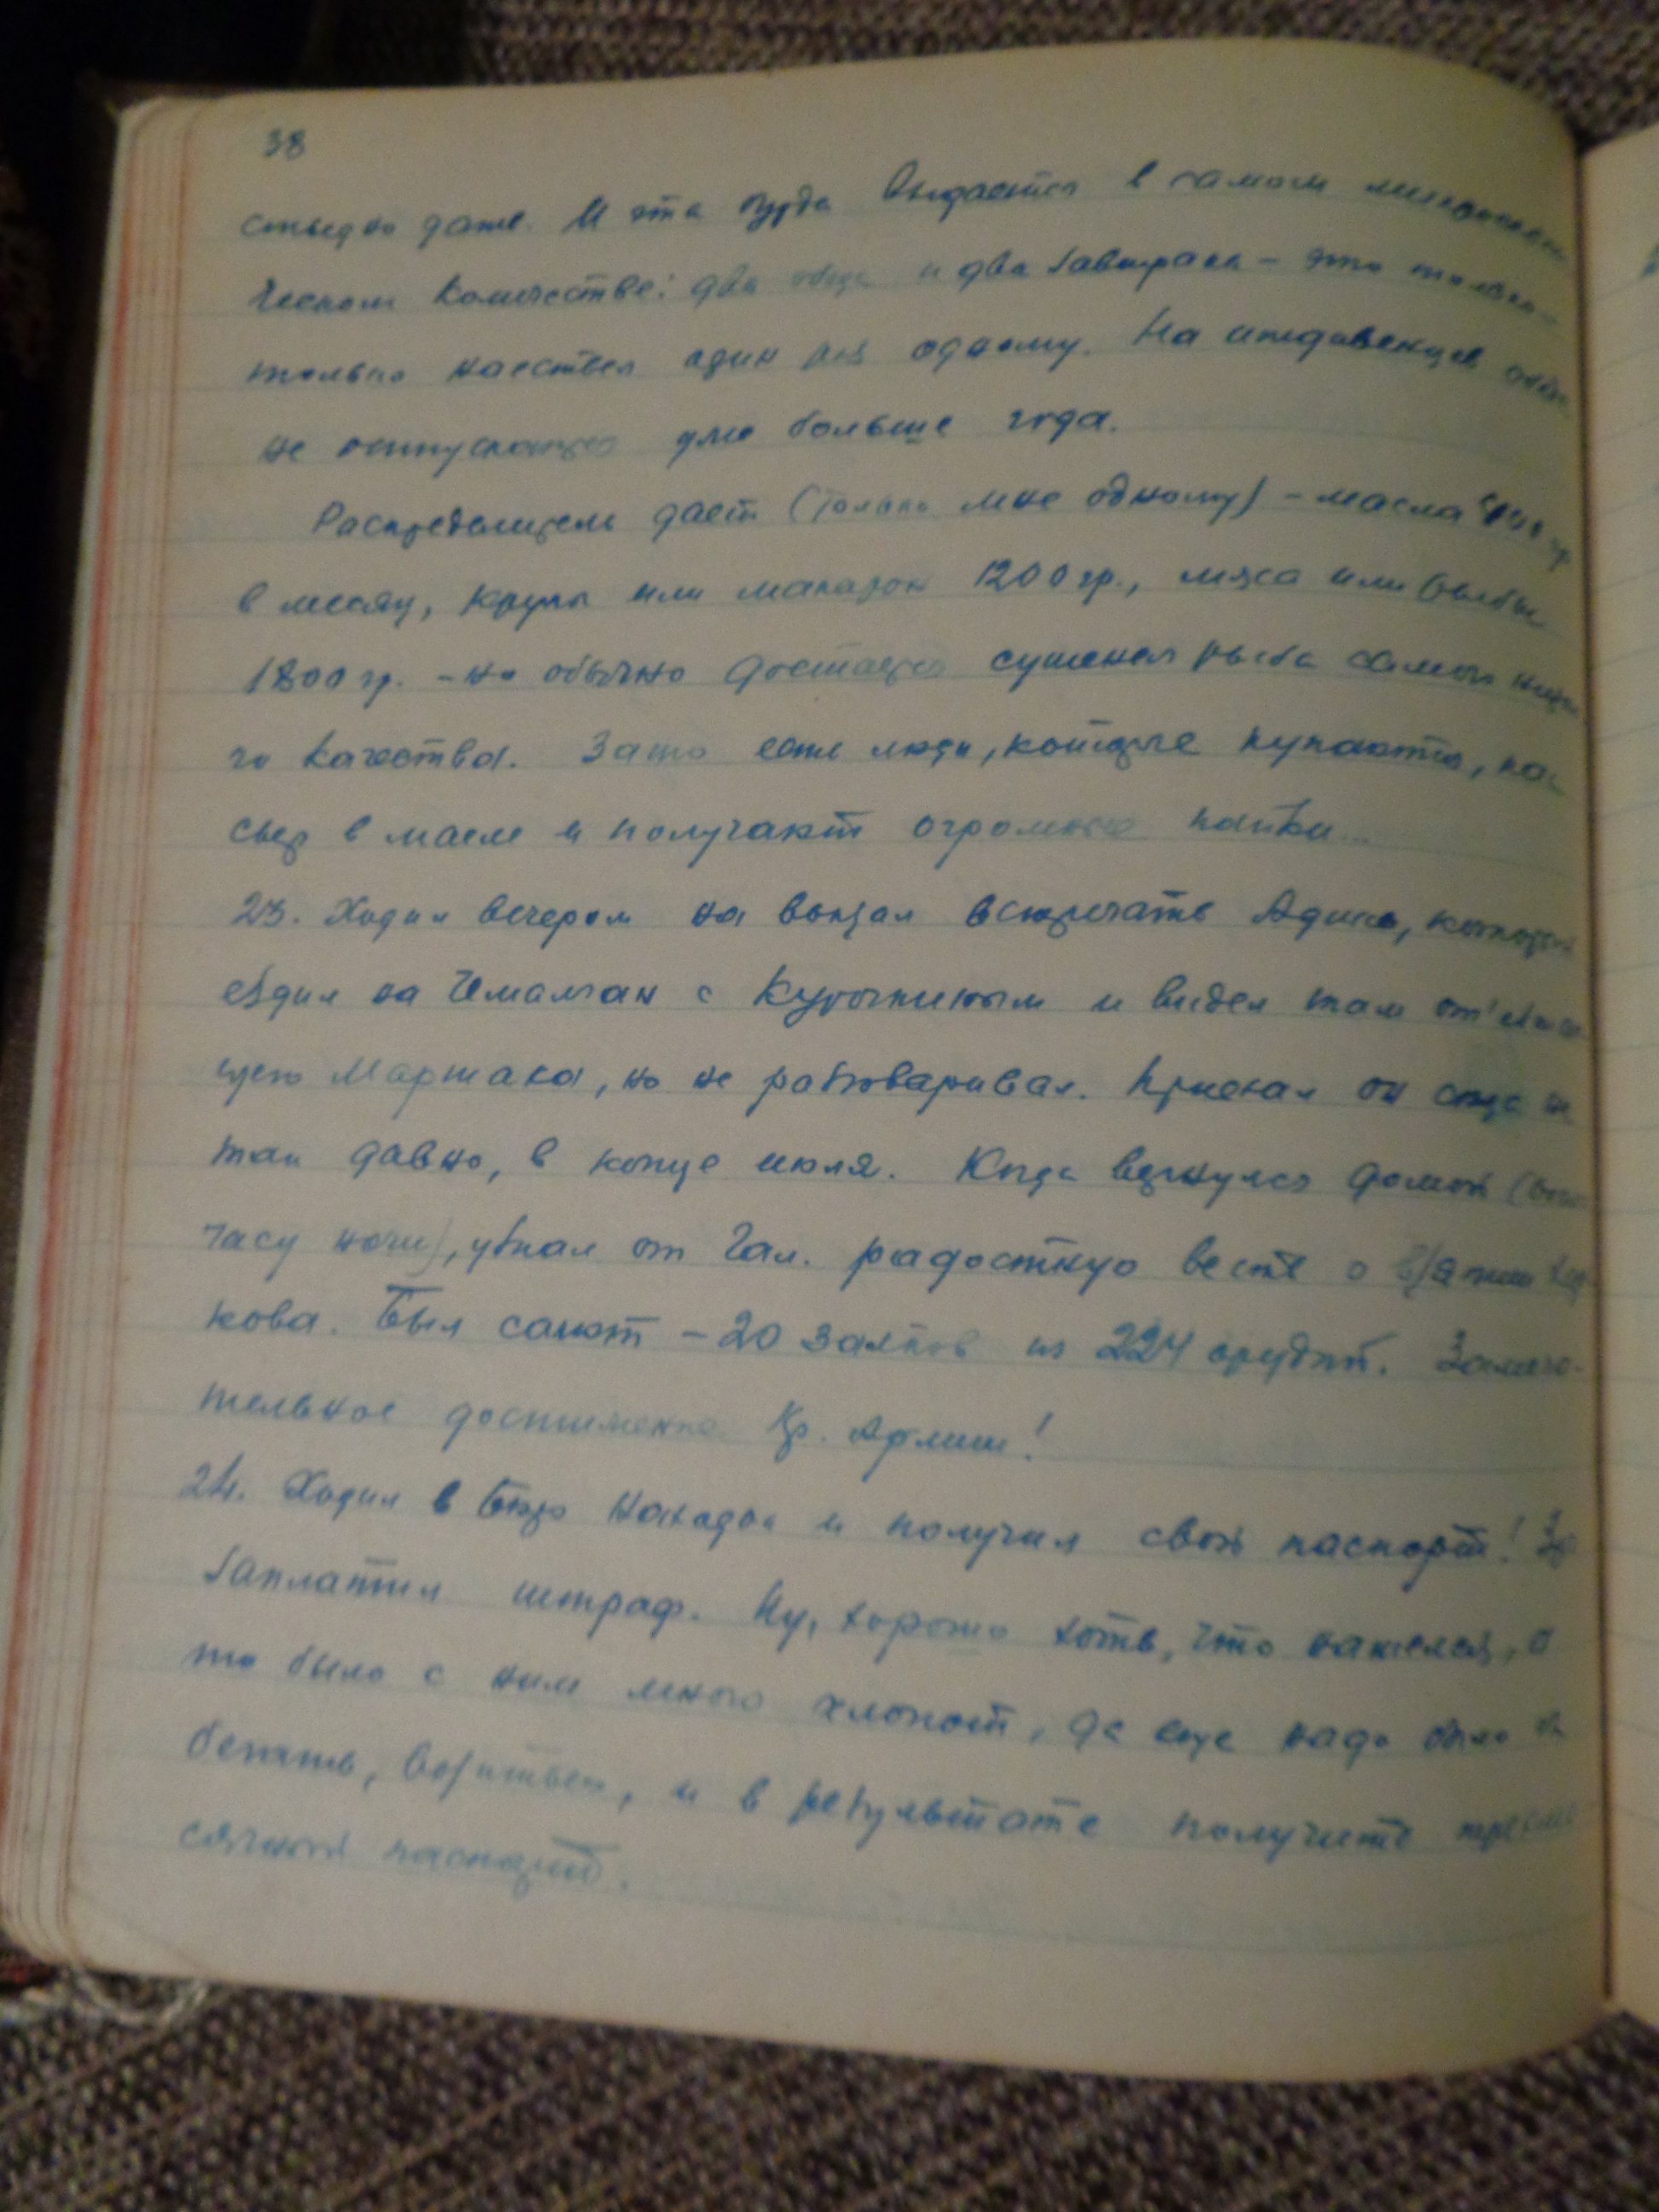 38
стыдно даже. И эта бурда выдается в самом микроскопи-
ческом количестве: два обеда и два завтрака – это только-
только наесться один раз одному. На иждивенцев обеды
не отпускаются уже больше года.
Распределитель дает (только мне одному) – масла 400 гр
в месяц, крупы или макарон 1200 гр., мяса или рыбы
1800 гр. – но обычно достается сушеная рыба самого низко
го качества. Зато есть люди, которые купаются, ка-
сыр в масле и получают огромные пайки...
23. Ходил вечером на вокзал встречать Адика, который
ездил на Чемалган с Курочкиным и видел там от'езжаю
щего Маршака, но не разговаривал. Приехал он сюда не
так давно, в конце июля. Когда вернулся домой (около
часу ночи), узнал от Гал. радостную весть о взятии Харь
кова. Был салют – 20 залпов из 224 орудий. Замеча-
тельное достижение Кр. Армии!
24. Ходил в Бюро Находок и получил свой паспорт!
заплатил штраф. Ну, хорошо хоть, что нашелся, а
то было с ним много хлопот, да еще надо было бы
бегать, возиться, и в результате получить трехме
сячный паспорт.